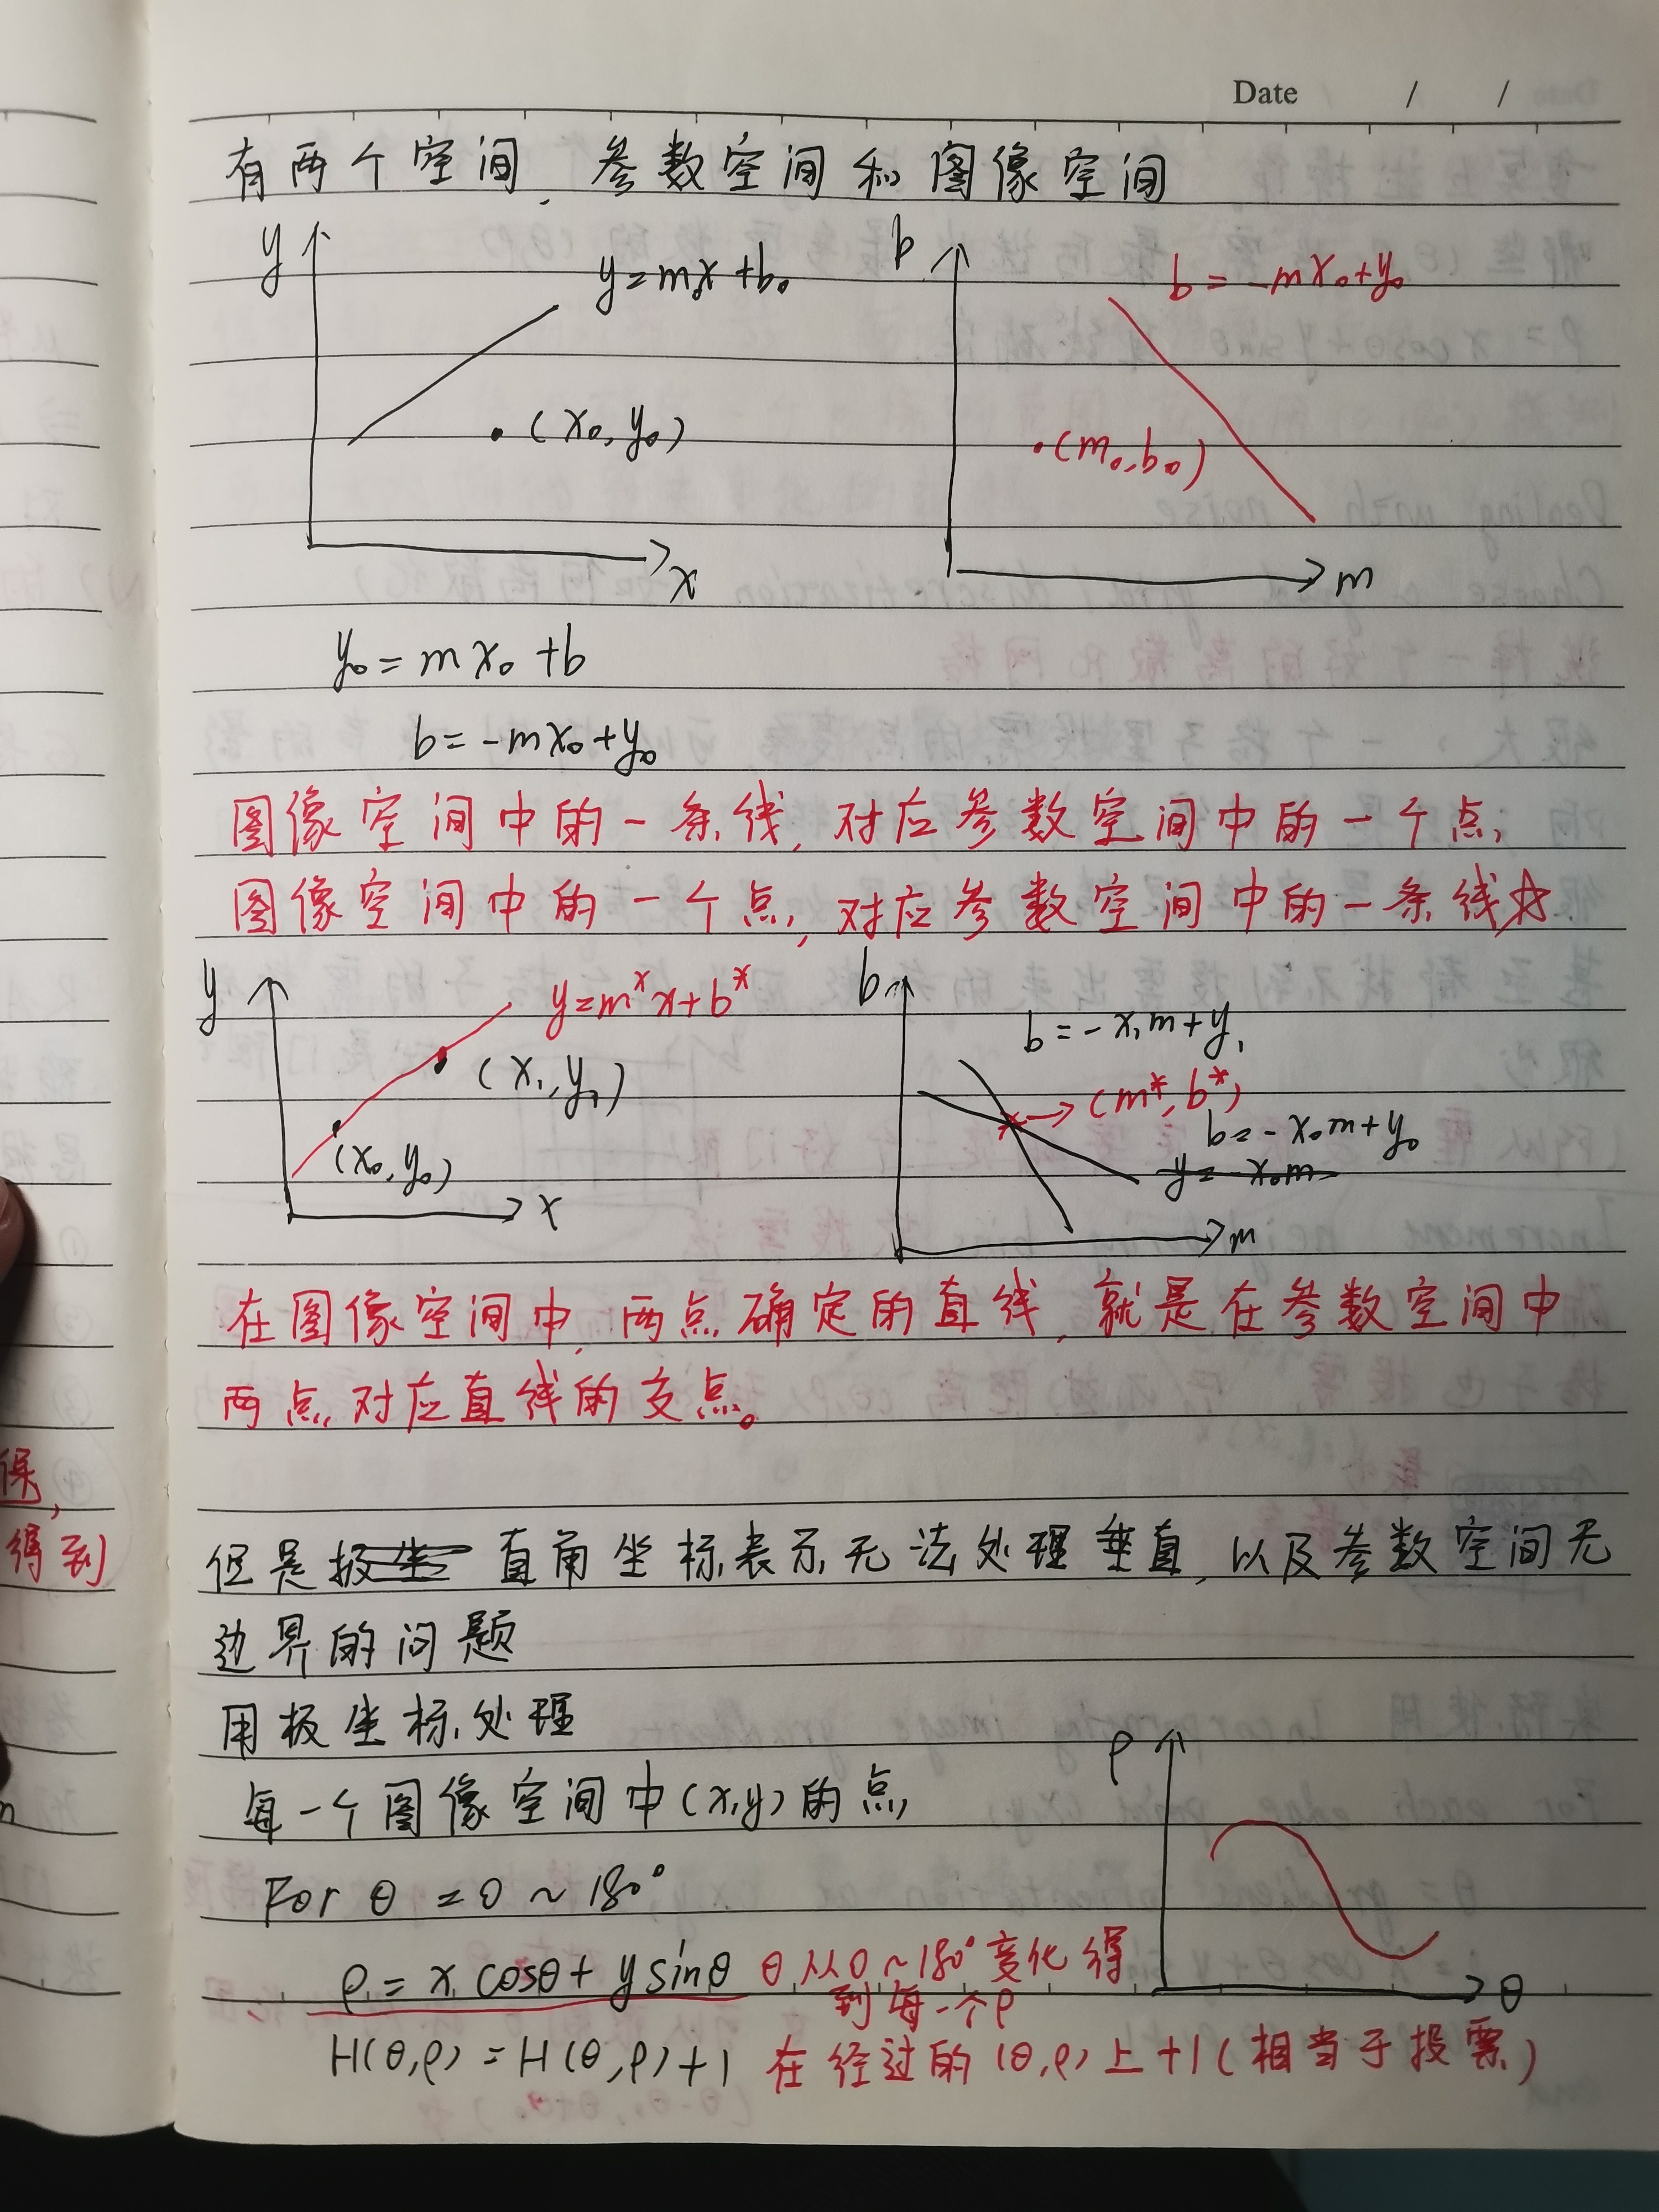 Date / /
有两个空间、参数空间和图像空间
y
y=m₀x+b₀
(x₀,y₀)
x
b
b=-mx₀+y₀
(m₀,b₀)
m
y₀=mx₀+b
b=-mx₀+y₀
图像空间中的一条线,对应参数空间中的一个点,
图像空间中的一个点,对应参数空间中的一条线
y
y=m*x+b*
(x₁,y₁)
(x₀,y₀)
x
b
b=-x₁m+y₁
(m*,b*)
b=-x₀m+y₀
y=-x₀m
m
在图像空间中,两点确定的直线,就是在参数空间中
两点对应直线的交点。
保,
得到
但是极坐 直角坐标表示无法处理垂直,以及参数空间无
边界的问题
用极坐标处理
每一个图像空间中(x,y)的点
For θ=0~180°
ρ=x cosθ+y sinθ θ从0~180°变化得
到每一个ρ
H(θ,ρ)=H(θ,ρ)+1 在经过的(θ,ρ)上+1(相当于投票)
ρ
θ